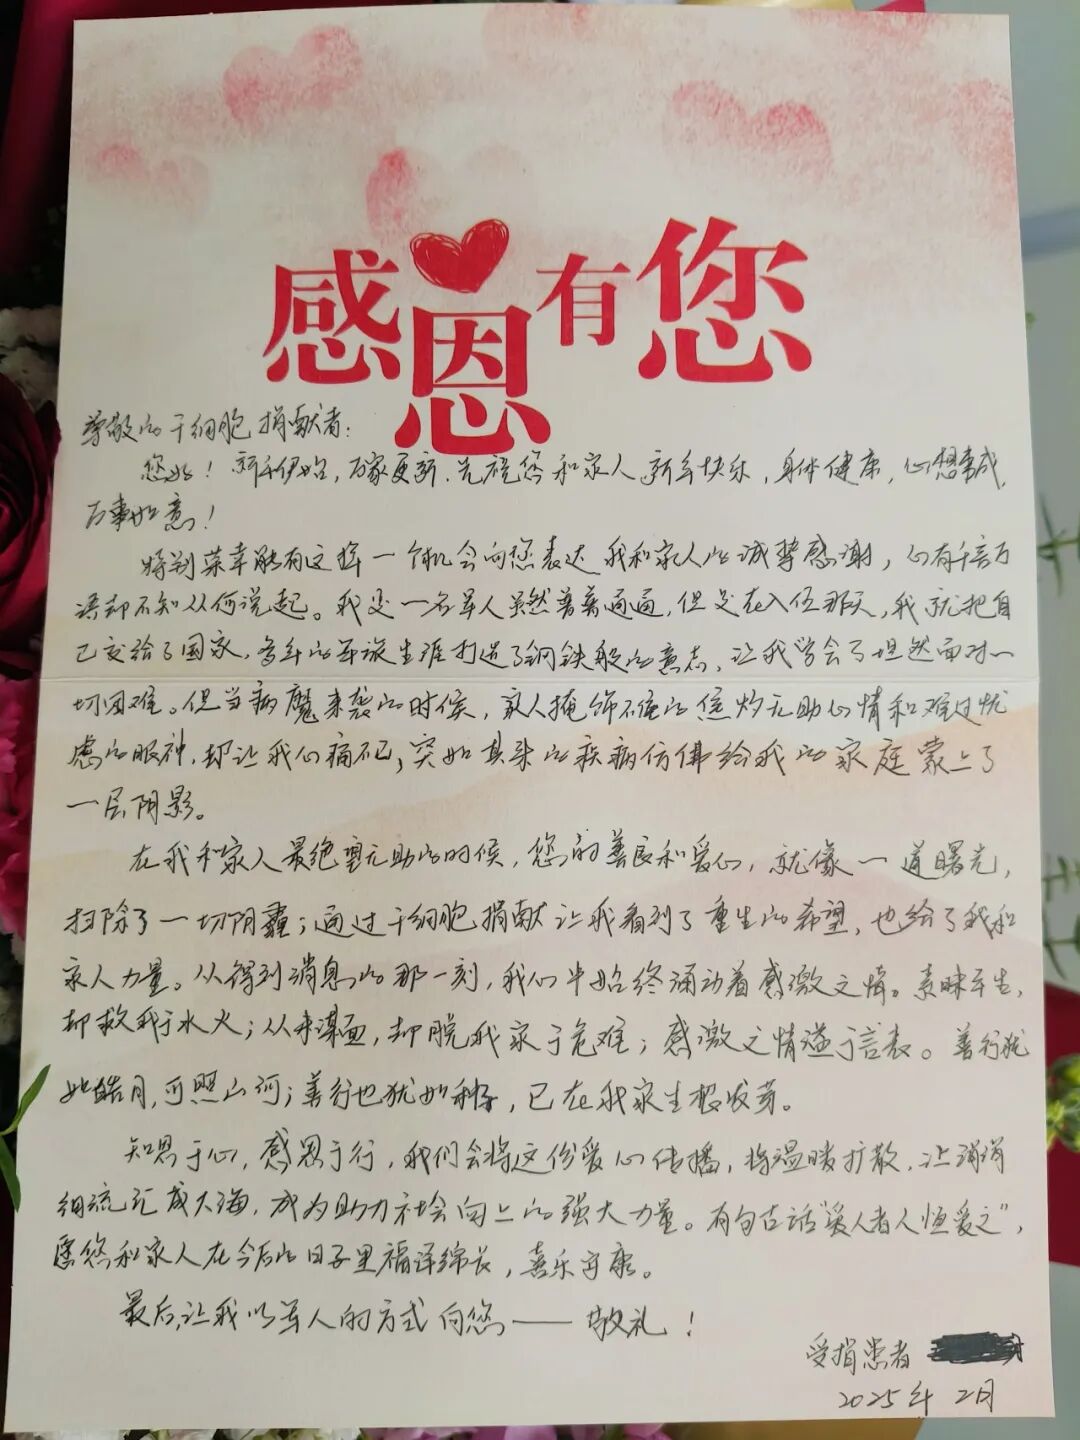 感恩有您
尊敬的干细胞捐献者：
您好！新年伊始，万家更新，先祝您和家人新年快乐，身体健康，心想事成，
万事如意！
特别荣幸能有这样一个机会向您表达我和家人的诚挚感谢，心有千言万
语却不知从何说起。我是一名军人虽然普普通通，但是在入伍那天，我就把自
己交给了国家，多年的军旅生涯打造了钢铁般的意志，让我学会了坦然面对一
切困难。但当病魔来袭的时候，家人掩饰不住的焦灼无助心情和难过忧
虑的眼神，却让我心痛不已，突如其来的疾病仿佛给我的家庭蒙上了
一层阴影。
在我和家人最绝望无助的时候，您的善良和爱心，就像一道曙光，
扫除了一切阴霾；通过干细胞捐献让我看到了重生的希望，也给了我和
家人力量。从得到消息的那一刻，我们心中始终涌动着感激之情。素昧平生，
却救我于水火；从未谋面，却脱我家于危难；感激之情溢于言表。善行犹
如皓月，可照山河；善行也犹如种子，已在我家生根发芽。
知恩于心，感恩于行，我们会将这份爱心传播，将温暖扩散，让涓涓
细流汇成大海，成为助力社会向上的强大力量。有句古话“爱人者人恒爱之”，
愿您和家人在今后的日子里福泽绵长，喜乐安康。
最后，让我以军人的方式向您——敬礼！
受捐患者
2025年2月